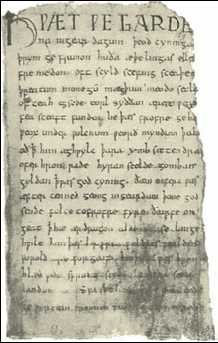 HǷÆT ǷE GARDE
na ingear dagum þeod cyninga
þrym ge frunon huða æþelingas elle
fremedon. oft scyld scefing sceaþe
þreatum monegū mægþum meodo setla
of teah egsode eorl syððan ærest ƿear
fea sceaft funden he þæs frofre geba
ƿeox under ƿolcnum ƿeorð myndum þah
oð þ him æghƿylc þara ymb sittendra
ofer hron rade hyran scolde gomban
gyldan þ ƿæs god cyning. ðæm eafera ƿæs
æfter cenned geong in geardum þone god
sende folce tofrofre fyren ðearfe on
geat þ hie ær drugon aldor ase. lange
hƿile him þæs
ƿorold are for geaf.
blæd ƿide sprang scyldes eafera
landum in. Sƿa sceal
ge ƿyrcean fromum